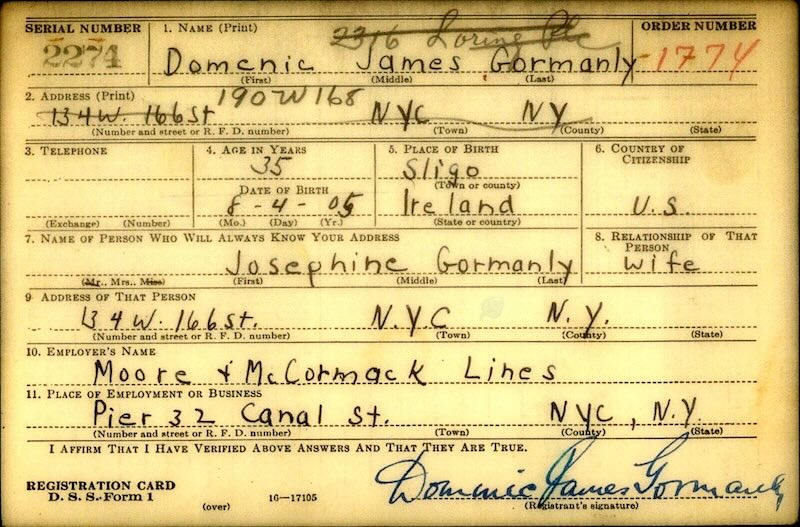 SERIAL NUMBER
2274
1. NAME (Print)
2316 Loring Ple
ORDER NUMBER
1774
Domenic James Gormanly
(First) (Middle) (Last)
2. ADDRESS (Print)
190 W 168
134 W. 166 St NYC NY
(Number and street or R. F. D. number) (Town) (County) (State)
3. TELEPHONE
4. AGE IN YEARS
35
DATE OF BIRTH
8-4-05
(Exchange) (Number)
(Mo.) (Day) (Yr.)
5. PLACE OF BIRTH
Sligo
(Town or county)
Ireland
(State or country)
6. COUNTRY OF
CITIZENSHIP
U.S.
7. NAME OF PERSON WHO WILL ALWAYS KNOW YOUR ADDRESS
Josephine Gormanly
(Mr., Mrs., Miss) (First) (Middle) (Last)
8. RELATIONSHIP OF THAT
PERSON
Wife
9 ADDRESS OF THAT PERSON
134 W. 166 St. N.Y.C N.Y.
(Number and street or R. F. D. number) (Town) (County) (State)
10. EMPLOYER'S NAME
Moore & McCormack Lines
11. PLACE OF EMPLOYMENT OR BUSINESS
Pier 32 Canal St. NYC, N.Y.
(Number and street or R. F. D. number) (Town) (County) (State)
I AFFIRM THAT I HAVE VERIFIED ABOVE ANSWERS AND THAT THEY ARE TRUE.
REGISTRATION CARD
D. S. S. Form 1
(over)
16—17105
Dominic James Gormanly
(Registrant's signature)